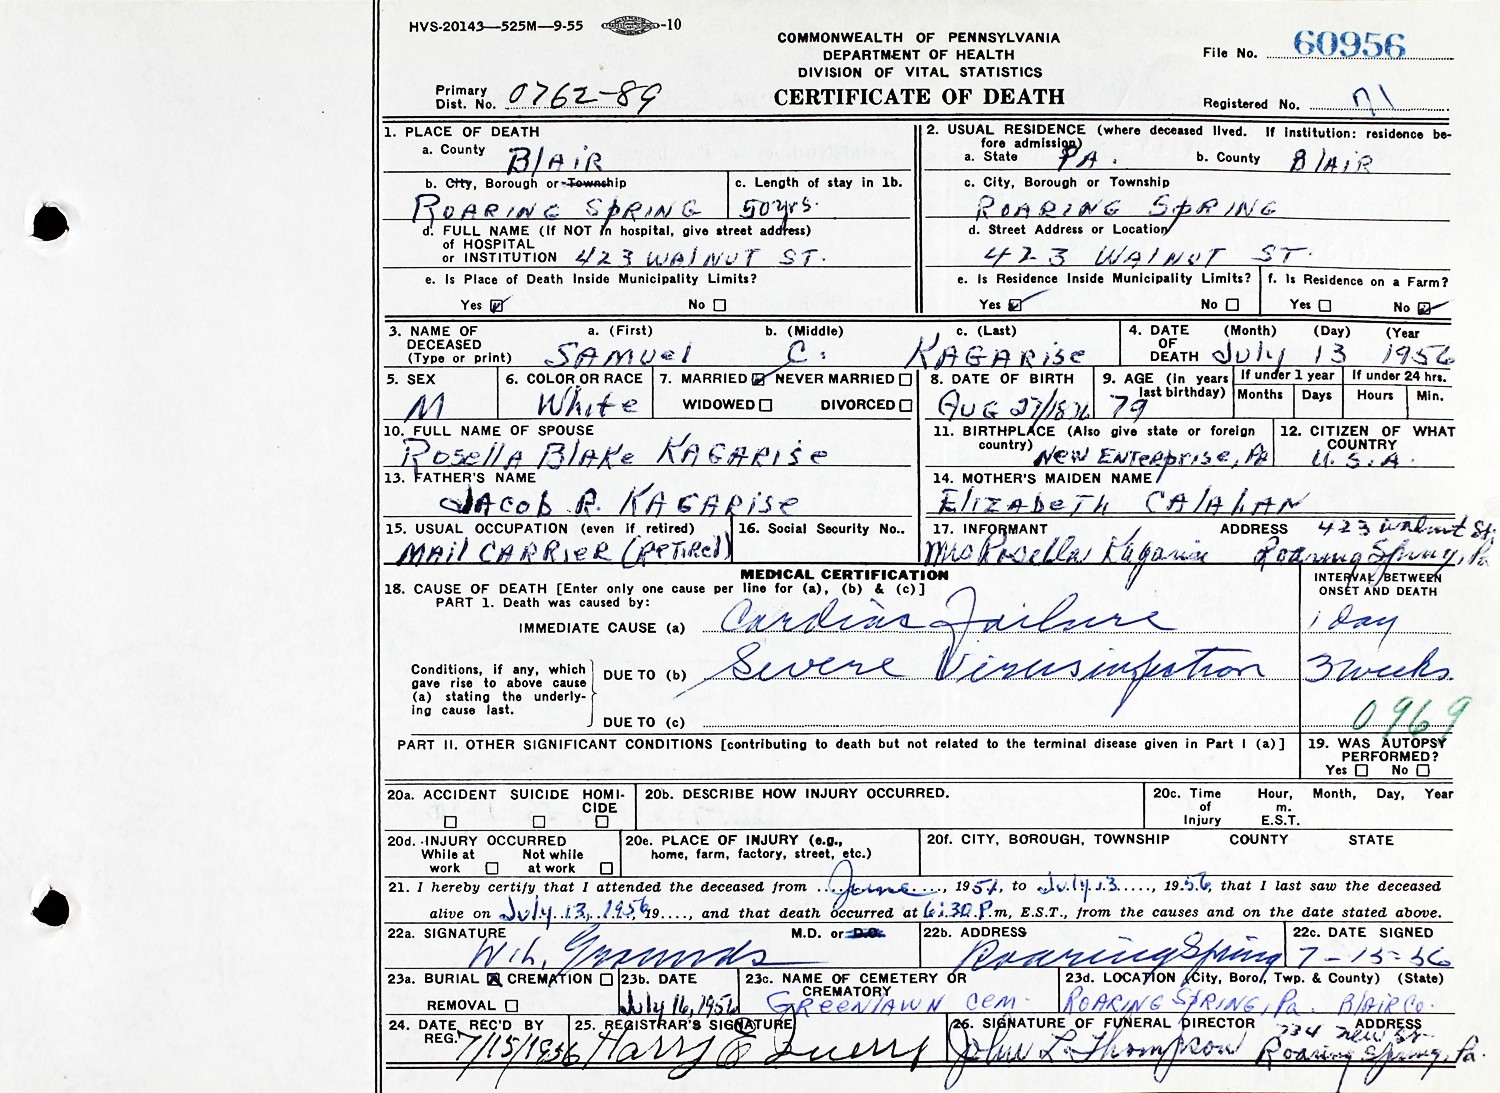 HVS-20143—525M—9-55 -10
COMMONWEALTH OF PENNSYLVANIA
DEPARTMENT OF HEALTH
DIVISION OF VITAL STATISTICS
CERTIFICATE OF DEATH
File No. 60956
Primary
Dist. No. 0762-89
Registered No. 71
1. PLACE OF DEATH
a. County BlAIR
b. City, Borough or Township
ROARING SPRING
c. Length of stay in 1b.
50 yrs.
d. FULL NAME (If NOT in hospital, give street address)
of HOSPITAL
or INSTITUTION 423 WALNUT ST.
e. Is Place of Death Inside Municipality Limits?
Yes No
2. USUAL RESIDENCE (where deceased lived. If Institution: residence be-
fore admission)
a. State PA. b. County BlAIR
c. City, Borough or Township
ROARING SPRING
d. Street Address or Location
423 WALNUT ST.
e. Is Residence Inside Municipality Limits?
Yes No
f. Is Residence on a Farm?
Yes No
3. NAME OF
DECEASED
(Type or print)
a. (First) b. (Middle) c. (Last)
SAMUEL C. KAGARISE
4. DATE
OF
DEATH
(Month) (Day) (Year
July 13 1956
5. SEX
M
6. COLOR OR RACE
White
7. MARRIED NEVER MARRIED
WIDOWED DIVORCED
8. DATE OF BIRTH
AUG 27/1876
9. AGE (in years
last birthday)
79
If under 1 year
Months Days
If under 24 hrs.
Hours Min.
10. FULL NAME OF SPOUSE
Rosella Blake KAGARISE
11. BIRTHPLACE (Also give state or foreign
country) New ENTERPRISE, PA
12. CITIZEN OF WHAT
COUNTRY
U.S.A.
13. FATHER'S NAME
JACOB R. KAGARISE
14. MOTHER'S MAIDEN NAME
ELIZABETH CALAHAN
15. USUAL OCCUPATION (even if retired)
MAIL CARRIER (RETIRED)
16. Social Security No..
17. INFORMANT ADDRESS 423 Walnut St.
Mrs Rosella Kagarise Roaring Spring, Pa
MEDICAL CERTIFICATION
18. CAUSE OF DEATH [Enter only one cause per line for (a), (b) & (c)]
PART 1. Death was caused by:
INTERVAL BETWEEN
ONSET AND DEATH
IMMEDIATE CAUSE (a) Cardiac Failure 1 day
Conditions, if any, which
gave rise to above cause
(a) stating the underly-
ing cause last.
DUE TO (b) Severe Virus infection 3 weeks.
DUE TO (c)
0969
PART II. OTHER SIGNIFICANT CONDITIONS [contributing to death but not related to the terminal disease given in Part I (a)]
19. WAS AUTOPSY
PERFORMED?
Yes No
20a. ACCIDENT SUICIDE HOMI-
CIDE
20b. DESCRIBE HOW INJURY OCCURRED.
20c. Time
of
Injury
Hour, Month, Day, Year
m.
E.S.T.
20d. INJURY OCCURRED
While at Not while
work at work
20e. PLACE OF INJURY (e.g.,
home, farm, factory, street, etc.)
20f. CITY, BOROUGH, TOWNSHIP COUNTY STATE
21. I hereby certify that I attended the deceased from June, 1951, to July 13, 1956, that I last saw the deceased
alive on July 13, 1956 19...., and that death occurred at 6:30 P.m, E.S.T., from the causes and on the date stated above.
22a. SIGNATURE M.D. or D.O.
W.H. Grounds
22b. ADDRESS
Roaring Spring
22c. DATE SIGNED
7-15-56
23a. BURIAL CREMATION
REMOVAL
23b. DATE
July 16, 1956
23c. NAME OF CEMETERY OR
CREMATORY
GREENLAWN CEM.
23d. LOCATION (City, Boro, Twp. & County) (State)
ROARING SPRING, Pa. BLAIR Co.
24. DATE REC'D BY
REG. 7/15/1956
25. REGISTRAR'S SIGNATURE
Harry E Querry
26. SIGNATURE OF FUNERAL DIRECTOR ADDRESS
John L. Thompson 734 New St.
Roaring Spring, Pa.